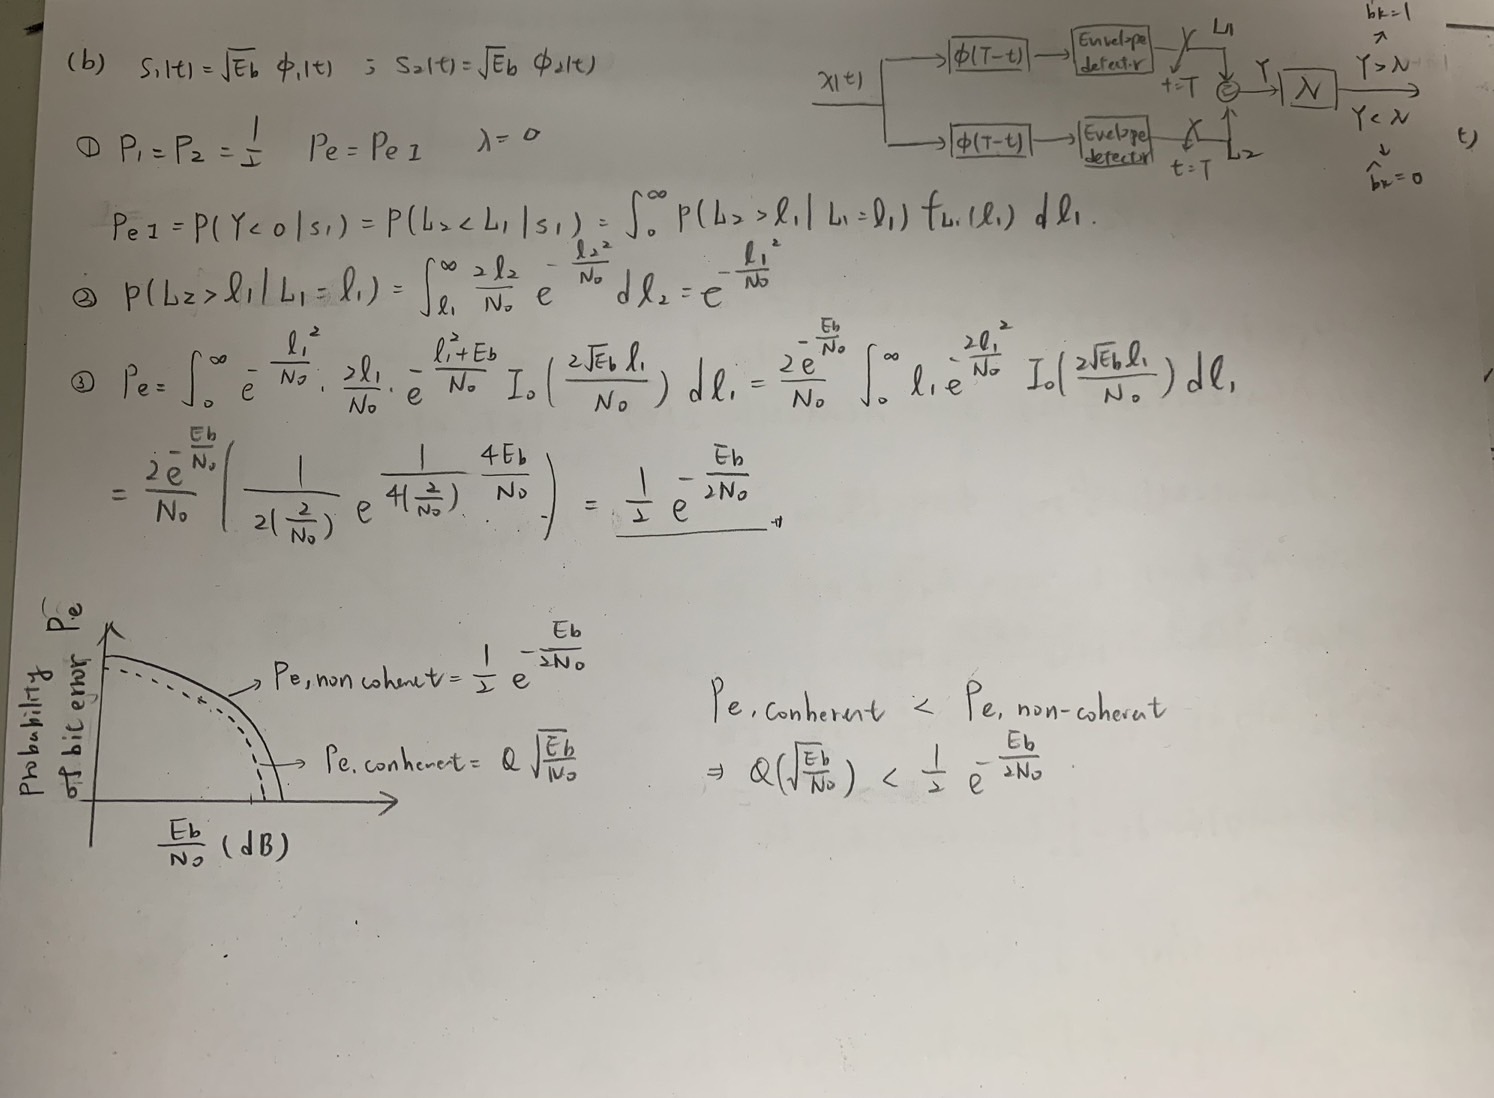 (b) S₁(t) = √Eb ϕ₁(t) ; S₂(t) = √Eb ϕ₂(t)
x(t) ϕ(T-t) Envelope detector t=T L₁
ϕ(T-t) Evelope detector t=T L₂
Y λ Y>λ b̂k=1
Y<λ b̂k=0
t)
① P₁ = P₂ = 1/2 Pe = Pe1 λ = 0
Pe1 = P(Y<0|s₁) = P(L₂<L₁|s₁) = ∫₀^∞ P(L₂>l₁|L₁=l₁) f_L₁(l₁) dl₁.
② P(L₂>l₁|L₁=l₁) = ∫_l₁^∞ 2l₂/N₀ e^(-l₂²/N₀) dl₂ = e^(-l₁²/N₀)
③ Pe = ∫₀^∞ e^(-l₁²/N₀) · 2l₁/N₀ · e^(-(l₁²+Eb)/N₀) I₀(2√Eb l₁/N₀) dl₁ = 2e^(-Eb/N₀)/N₀ ∫₀^∞ l₁ e^(-2l₁²/N₀) I₀(2√Eb l₁/N₀) dl₁
= 2e^(-Eb/N₀)/N₀ (1/(2(2/N₀)) e^(1/(4(2/N₀)) · 4Eb/N₀)) = 1/2 e^(-Eb/2N₀)
Probability of bit error Pe
Pe, non cohenet = 1/2 e^(-Eb/2N₀)
Pe. conherent = Q √(Eb/N₀)
Eb/N₀ (dB)
Pe, conherent < Pe, non-coherent
⇒ Q(√(Eb/N₀)) < 1/2 e^(-Eb/2N₀)